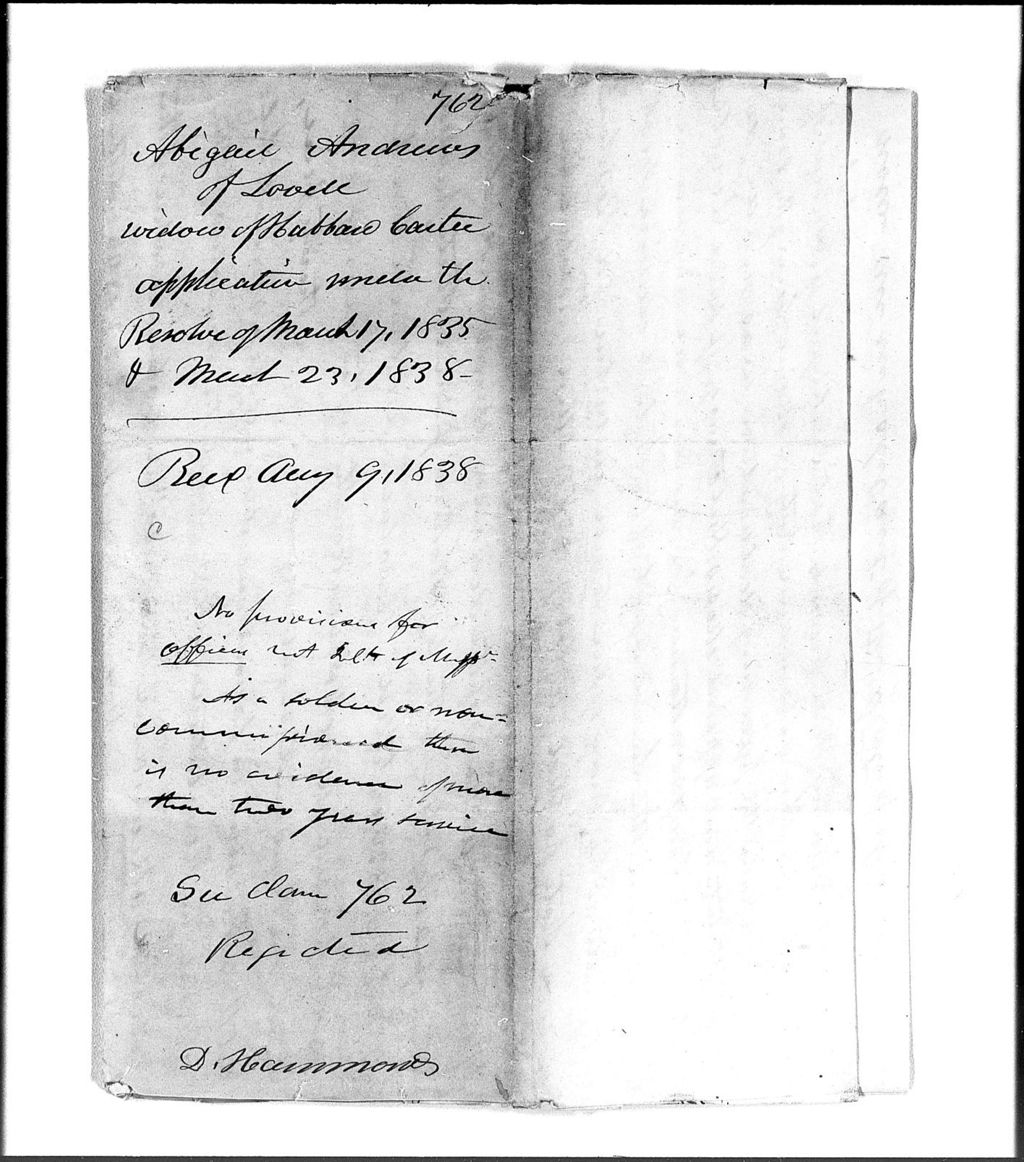 762
Abigail Andrews
of Lovell
widow of Hubbard Carter
application under the
Resolve of March 17, 1835
& March 23, 1838
Recd Aug 9, 1838
C
No provision for
officers not of
As a soldier or non=
commissioned there
is no evidence of more
than two years service
See Claim 762
Rejected
D. Hammonds